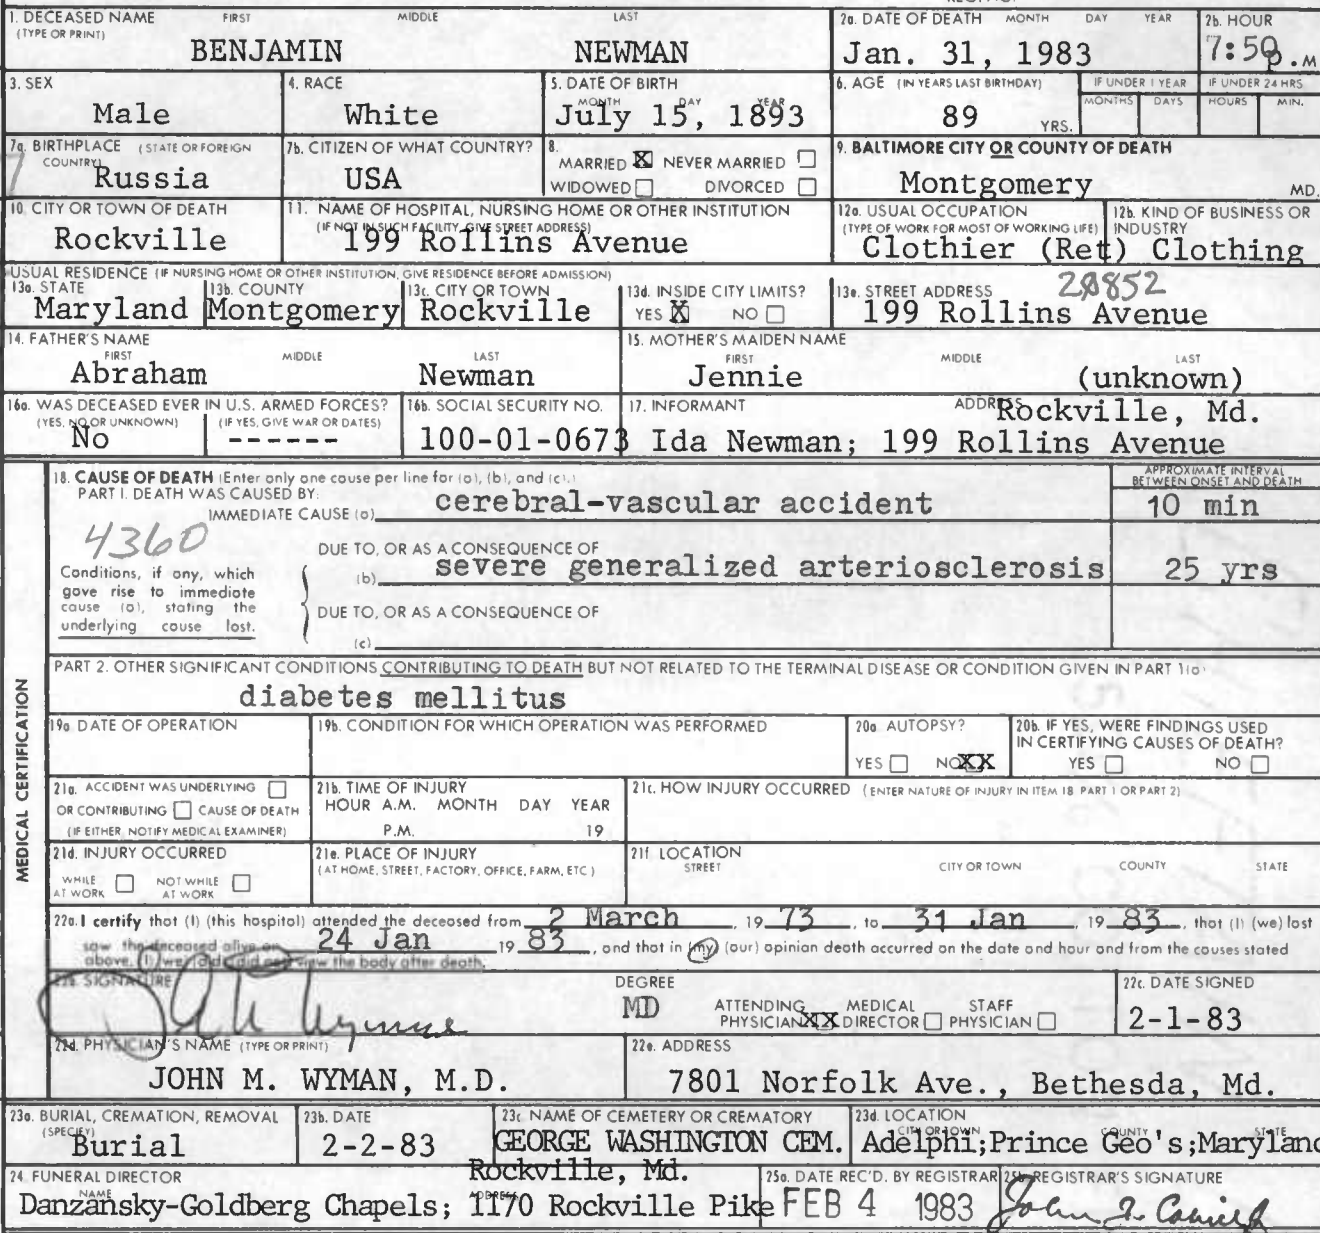 1. DECEASED NAME FIRST MIDDLE LAST
(TYPE OR PRINT)
BENJAMIN NEWMAN
2a. DATE OF DEATH MONTH DAY YEAR
Jan. 31, 1983
2b. HOUR
7:50 P.M
3. SEX
Male
4. RACE
White
5. DATE OF BIRTH
MONTH DAY YEAR
July 15, 1893
6. AGE (IN YEARS LAST BIRTHDAY)
89 YRS.
IF UNDER 1 YEAR
MONTHS DAYS
IF UNDER 24 HRS
HOURS MIN.
7a. BIRTHPLACE (STATE OR FOREIGN
COUNTRY)
Russia
7b. CITIZEN OF WHAT COUNTRY?
USA
8.
MARRIED X NEVER MARRIED
WIDOWED DIVORCED
9. BALTIMORE CITY OR COUNTY OF DEATH
Montgomery MD.
10. CITY OR TOWN OF DEATH
Rockville
11. NAME OF HOSPITAL, NURSING HOME OR OTHER INSTITUTION
(IF NOT IN SUCH FACILITY, GIVE STREET ADDRESS)
199 Rollins Avenue
12a. USUAL OCCUPATION
(TYPE OF WORK FOR MOST OF WORKING LIFE)
Clothier (Ret)
12b. KIND OF BUSINESS OR
INDUSTRY
Clothing
USUAL RESIDENCE (IF NURSING HOME OR OTHER INSTITUTION, GIVE RESIDENCE BEFORE ADMISSION)
13a. STATE
Maryland
13b. COUNTY
Montgomery
13c. CITY OR TOWN
Rockville
13d. INSIDE CITY LIMITS?
YES X NO
13e. STREET ADDRESS 20852
199 Rollins Avenue
14. FATHER'S NAME
FIRST MIDDLE LAST
Abraham Newman
15. MOTHER'S MAIDEN NAME
FIRST MIDDLE LAST
Jennie (unknown)
16a. WAS DECEASED EVER IN U.S. ARMED FORCES?
(YES, NO OR UNKNOWN) (IF YES, GIVE WAR OR DATES)
No ------
16b. SOCIAL SECURITY NO.
100-01-0673
17. INFORMANT ADDRESS Rockville, Md.
Ida Newman; 199 Rollins Avenue
MEDICAL CERTIFICATION
18. CAUSE OF DEATH (Enter only one cause per line for (a), (b), and (c).)
PART I. DEATH WAS CAUSED BY:
IMMEDIATE CAUSE (a) cerebral-vascular accident
APPROXIMATE INTERVAL
BETWEEN ONSET AND DEATH
10 min
4360
Conditions, if any, which
gave rise to immediate
cause (a), stating the
underlying cause last.
DUE TO, OR AS A CONSEQUENCE OF
(b) severe generalized arteriosclerosis 25 yrs
DUE TO, OR AS A CONSEQUENCE OF
(c)
PART 2. OTHER SIGNIFICANT CONDITIONS CONTRIBUTING TO DEATH BUT NOT RELATED TO THE TERMINAL DISEASE OR CONDITION GIVEN IN PART 1(a)
diabetes mellitus
19a. DATE OF OPERATION
19b. CONDITION FOR WHICH OPERATION WAS PERFORMED
20a. AUTOPSY?
YES NO XX
20b. IF YES, WERE FINDINGS USED
IN CERTIFYING CAUSES OF DEATH?
YES NO
21a. ACCIDENT WAS UNDERLYING
OR CONTRIBUTING CAUSE OF DEATH
(IF EITHER, NOTIFY MEDICAL EXAMINER)
21b. TIME OF INJURY
HOUR A.M. MONTH DAY YEAR
P.M. 19
21c. HOW INJURY OCCURRED (ENTER NATURE OF INJURY IN ITEM 18 PART 1 OR PART 2)
21d. INJURY OCCURRED
WHILE AT WORK NOT WHILE AT WORK
21e. PLACE OF INJURY
(AT HOME, STREET, FACTORY, OFFICE, FARM, ETC)
21f. LOCATION
STREET CITY OR TOWN COUNTY STATE
22a. I certify that (I) (this hospital) attended the deceased from 2 March, 19 73, to 31 Jan, 19 83, that (I) (we) last
saw the deceased alive on 24 Jan 19 83, and that in (my) (our) opinion death accurred on the date and hour and from the causes stated
above, (I) (we) (did) (did not) view the body after death.
22b. SIGNATURE
DEGREE
MD
ATTENDING PHYSICIAN XX MEDICAL DIRECTOR STAFF PHYSICIAN
22c. DATE SIGNED
2-1-83
22d. PHYSICIAN'S NAME (TYPE OR PRINT)
JOHN M. WYMAN, M.D.
22e. ADDRESS
7801 Norfolk Ave., Bethesda, Md.
23a. BURIAL, CREMATION, REMOVAL
(SPECIFY)
Burial
23b. DATE
2-2-83
23c. NAME OF CEMETERY OR CREMATORY
GEORGE WASHINGTON CEM.
23d. LOCATION
CITY OR TOWN COUNTY STATE
Adelphi;Prince Geo's;Maryland
24. FUNERAL DIRECTOR Rockville, Md.
NAME ADDRESS
Danzansky-Goldberg Chapels; 1170 Rockville Pike
25a. DATE REC'D. BY REGISTRAR
FEB 4 1983
25b. REGISTRAR'S SIGNATURE